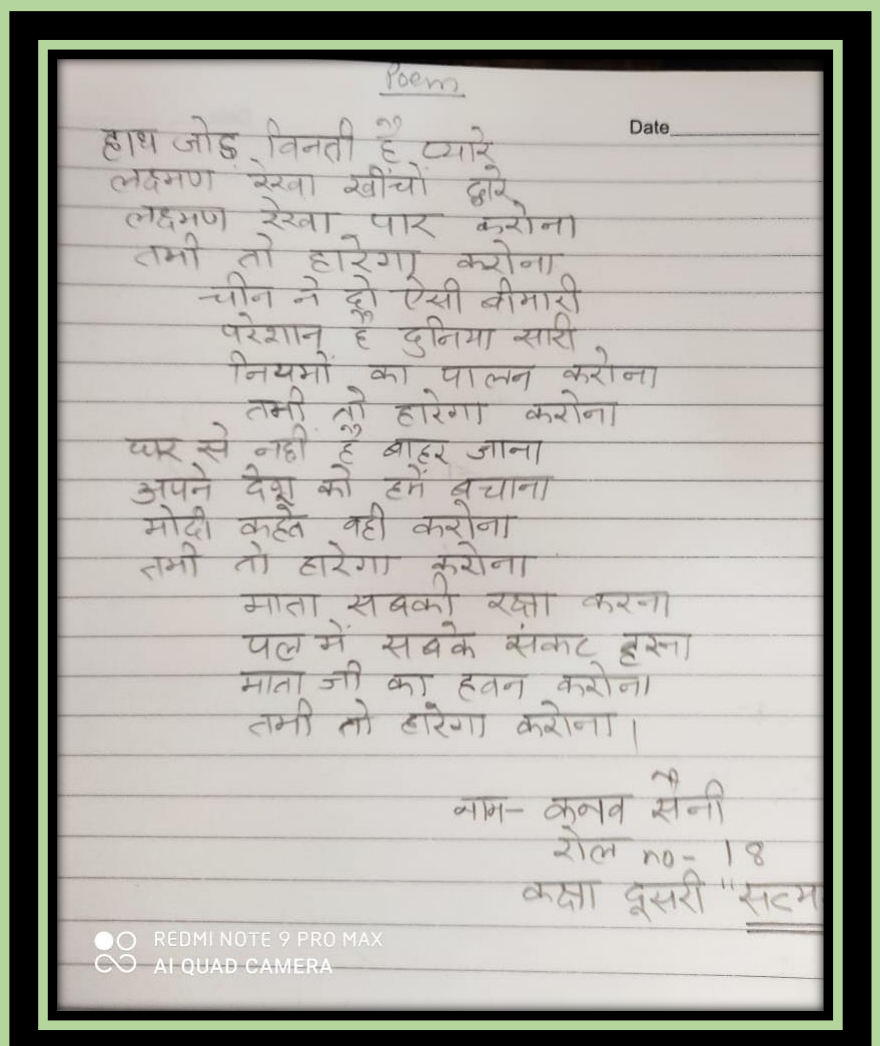 Poem
Date
हाथ जोड़ विनती है प्यारे
लक्ष्मण रेखा खींचों द्वारे
लक्ष्मण रेखा पार करोना
तभी तो हारेगा करोना
चीन ने दी ऐसी बीमारी
परेशान है दुनिया सारी
नियमों का पालन करोना
तभी तो हारेगा करोना
घर से नहीं है बाहर जाना
अपने देश को हमें बचाना
मोदी कहते वही करोना
तभी तो हारेगा करोना
माता सबकी रक्षा करना
पल में सबके संकट हरना
माता जी का हवन करोना
तभी तो हारेगा करोना।
नाम- कनव सैनी
रोल no- 18
कक्षा दूसरी "
REDMI NOTE 9 PRO MAX
AI QUAD CAMERA